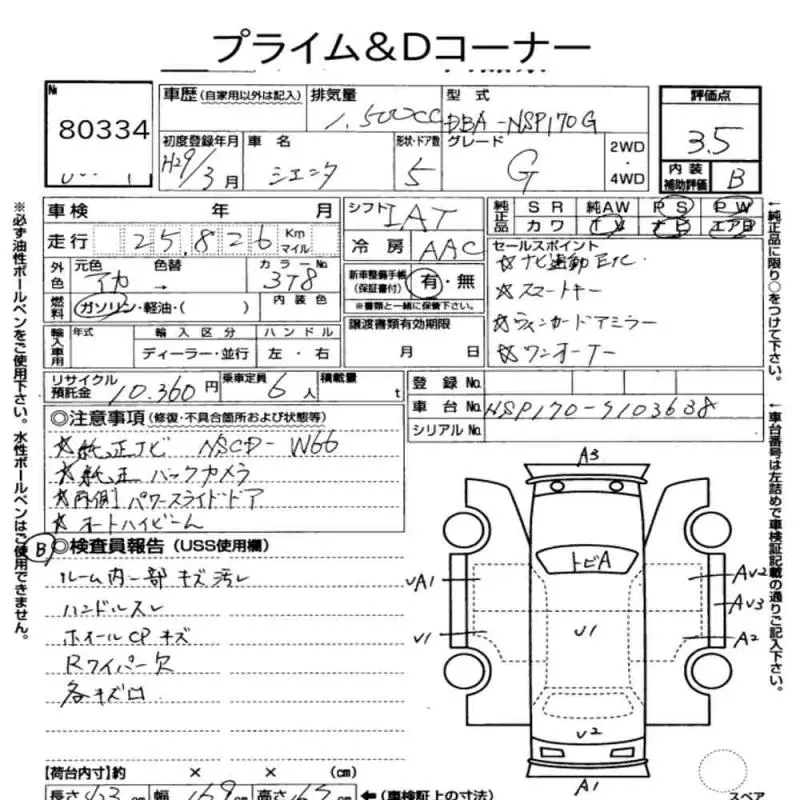 プライム&Dコーナー
№ 80334
車歴(自家用以外は記入) 排気量 1,500cc 型式 DBA-NSP170G 評価点 3.5
初度登録年月 H29/3月 車名 シエンタ 形状・ドア数 5 グレード G 2WD・4WD 内装補助評価 B
車検 年 月 シフト IAT 純正品 SR 純AW PS PW
カワ TV ナビ エアB
走行 25,826 Km マイル 冷房 AAC セールスポイント
外色 元色 アカ → 色替 カラーNo 3T8 内装色 新車整備手帳(保証書付) 有・無 ※書類と一緒に保管下さい。
☆ナビ連動ETC.
☆スマートキー
☆ウィンカードアミラー
☆ワンオーナー
燃料 ガソリン・軽油・( )
輸入車用 年式 輸入区分 ハンドル 譲渡書類有効期限
ディーラー・並行 左・右 月 日
リサイクル預託金 10,360円 乗車定員 6人 積載量 t 登録No.
車台No. NSP170-9103638
シリアルNo.
◎注意事項(修復・不具合箇所および状態等)
☆純正ナビ NSCD-W66
☆純正バックカメラ
☆両側パワースライドドア
☆オートハイビーム
B ◎検査員報告(USS使用欄)
ルーム内一部キズ汚レ
ハンドルスレ
ホイールCPキズ
Rワイパー欠
各キズ凹
A3
トビA
UA1
AU2
AU3
U1
U1
A2
U2
A1
【荷台内寸】約 × × (cm)
長さ 423cm 幅 169 高さ ←(車検証上の寸法)
スペア
※必ず油性ボールペンをご使用下さい。水性ボールペンはご使用できません。
←純正品に限り○をつけて下さい。
←車台番号は左詰めで車検証記載の通りご記入下さい。